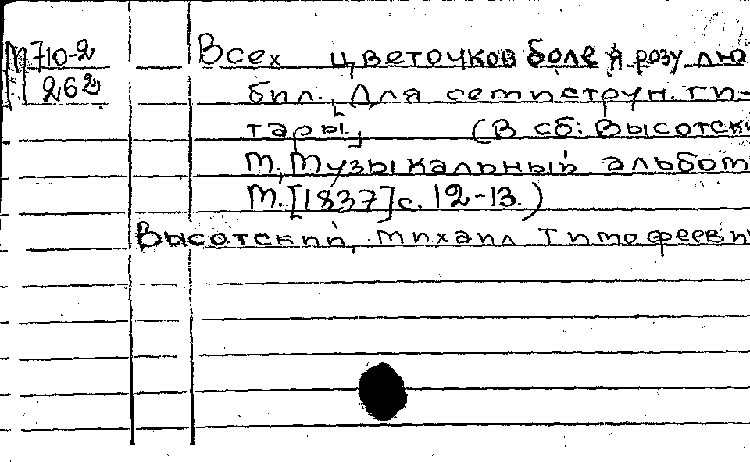 М 710-2
262
Всех цветочков боле я розу лю
бил. [Для семиструн. ги-
тары.] (В сб: Высотск
М. Музыкальный альбом
М. [1837] с. 12-13.)
Высотский, Михаил Тимофееви